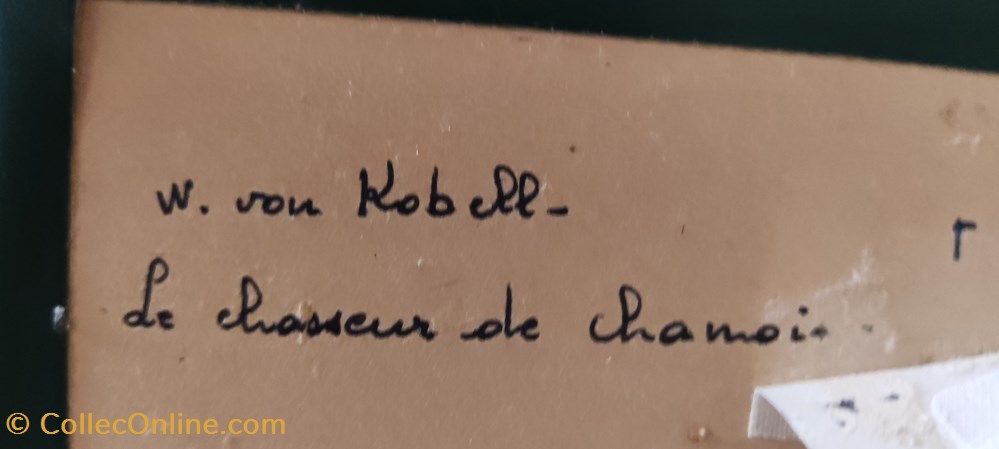 W. von Kobell-
Le chasseur de chamois.
r
© CollecOnline.com